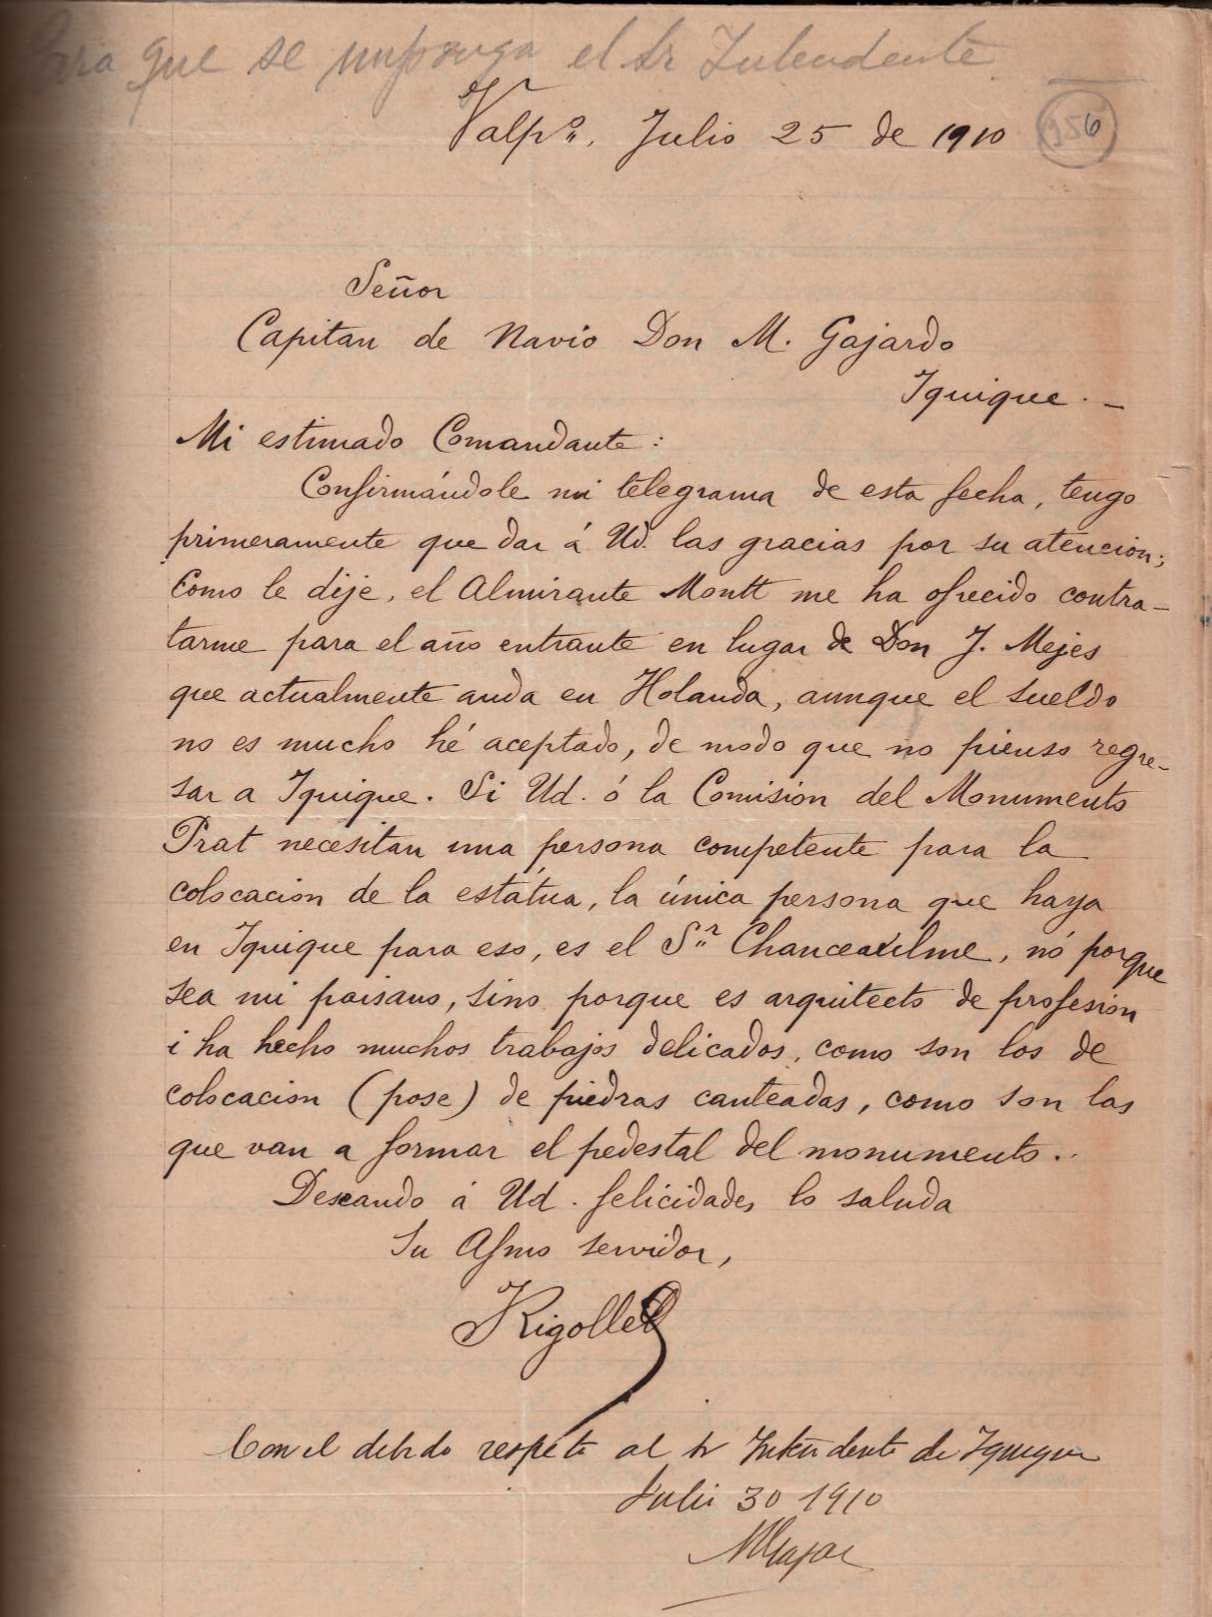 Para que se imponga el Sr Intendente
Valpº. Julio 25 de 1910
956
Señor
Capitan de Navio Don M. Gajardo
Iquique. _
Mi estimado Comandante:
Confirmándole mi telegrama de esta fecha, tengo
primeramente que dar á Ud. las gracias por su atencion;
Como le dije, el Almirante Montt me ha ofrecido contra-
tarme para el año entrante en lugar de Don J. Mejes
que actualmente anda en Holanda, aunque el sueldo
no es mucho hé aceptado, de modo que no pienso regre-
sar a Iquique. Si Ud. ó la Comision del Monumento
Prat necesitan una persona competente para la
colocacion de la estátua, la única persona que haya
en Iquique para eso, es el Sr. Chanceaulme, nó porque
sea mi paisano, sino porque es arquitecto de profesion
i ha hecho muchos trabajos delicados, como son los de
colocacion (pose) de piedras canteadas, como son las
que van a formar el pedestal del monumento..
Deseando á Ud. felicidades lo saluda
Su Afmo servidor,
Rigollet
Con el debido respeto al Sr Intendente de Iquique
Julio 30 1910